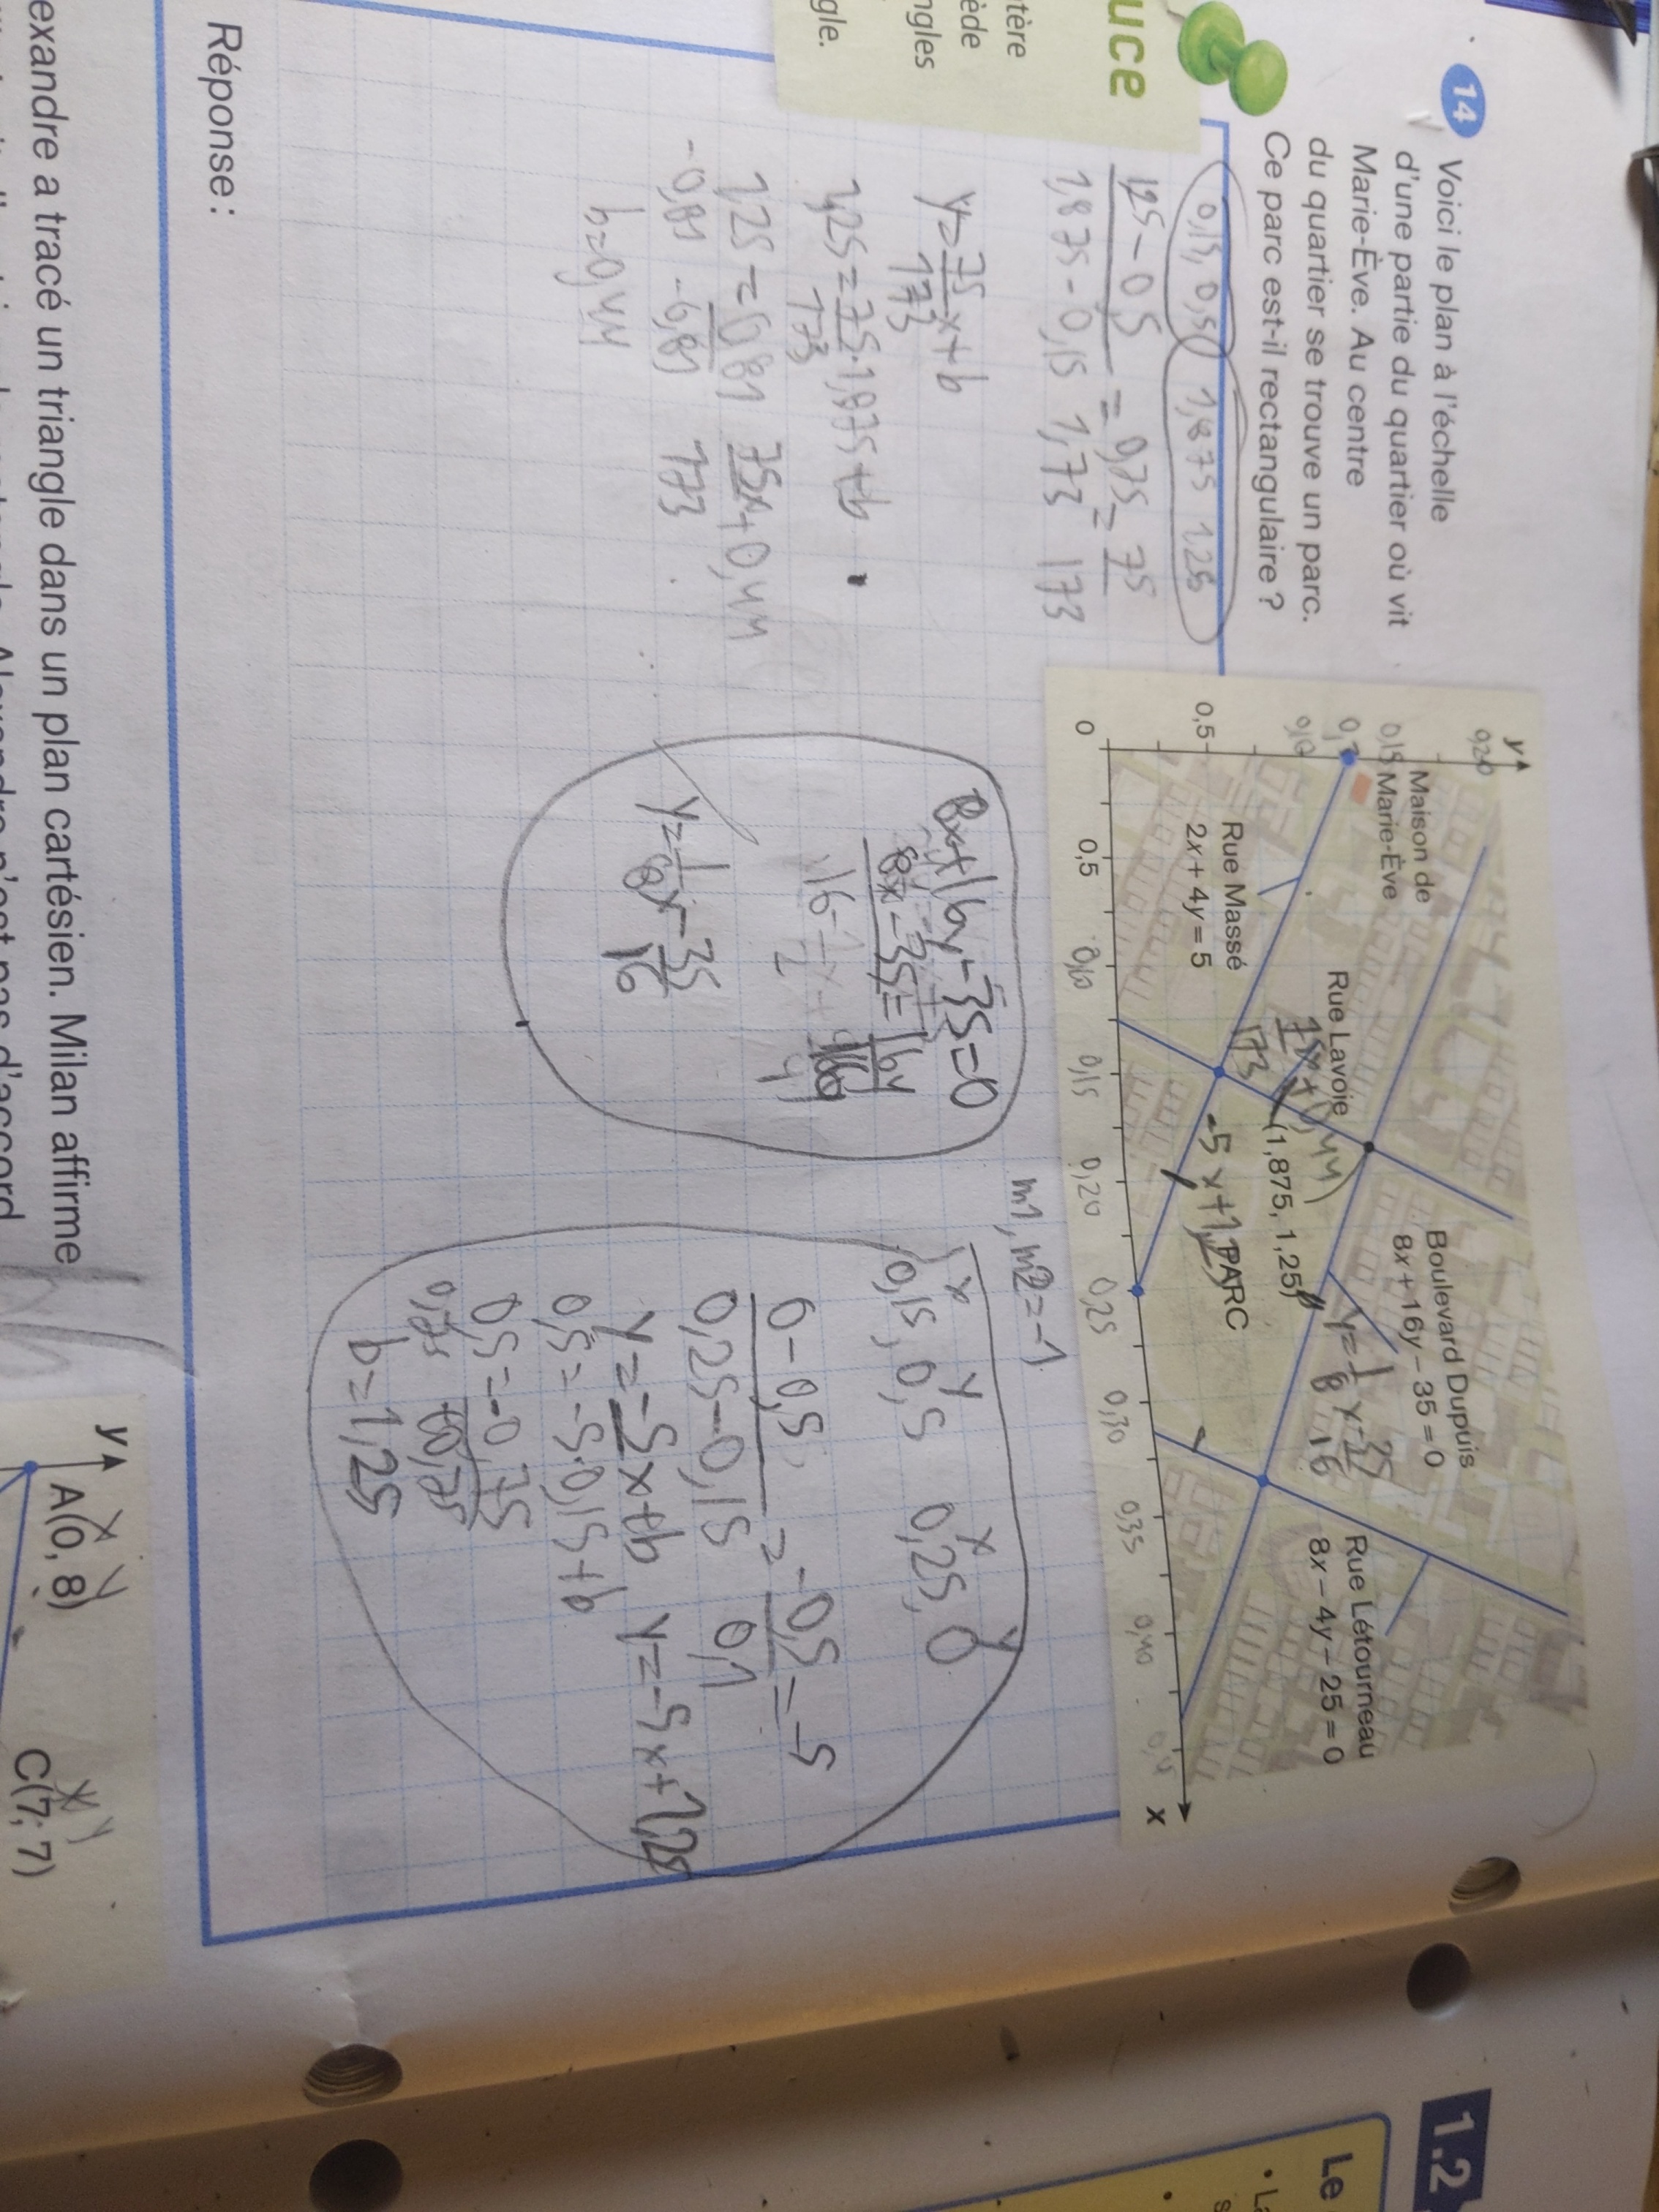 14 Voici le plan à l'échelle
d'une partie du quartier où vit
Marie-Ève. Au centre
du quartier se trouve un parc.
Ce parc est-il rectangulaire ?
uce
tère
ède
ngles
gle.
y
0,20
Maison de
Marie-Ève
0,15
0,5
0
Rue Massé
2x + 4y = 5
Rue Lavoie
(1,875, 1,25)
Boulevard Dupuis
8x + 16y − 35 = 0
PARC
-5x+1,25
Rue Létourneau
8x − 4y − 25 = 0
0,5
0,10
0,15
0,20
0,25
0,30
0,35
0,40
x
0,15, 0,50 1,875 1,25
1,25 - 0,5 = 0,75 = 75
1,875 - 0,15 1,73 173
y = 75 x + b
173
1,25 = 75 · 1,875 + b
173
1,25 = 0,81 75x + 0,44
-0,81 -0,81 173
b=0,44
8x+16y-35=0
8x-35=16y
16
y=1x-35
16
m1, m2=-1
x y x y
0,15, 0,5 0,25, 0
0-0,5 = -0,5 = -5
0,25-0,15 0,1
y=-5x+b y=-5x+1,25
0,5=-5·0,15+b
0,5=-0,75
0,75 +0,75
b=1,25
Réponse :
exandre a tracé un triangle dans un plan cartésien. Milan affirme
y
x y
A(0, 8)
x y
C(7, 7)
1.2
Le